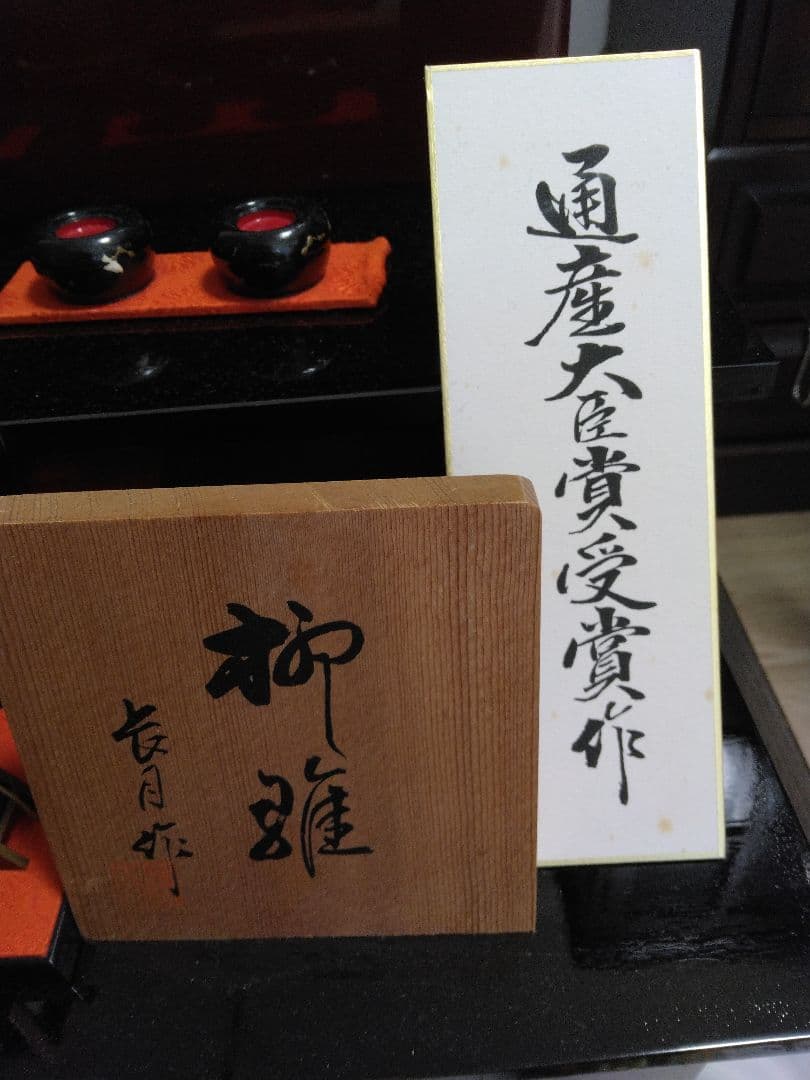 通産大臣賞受賞作
柳雛
長月作